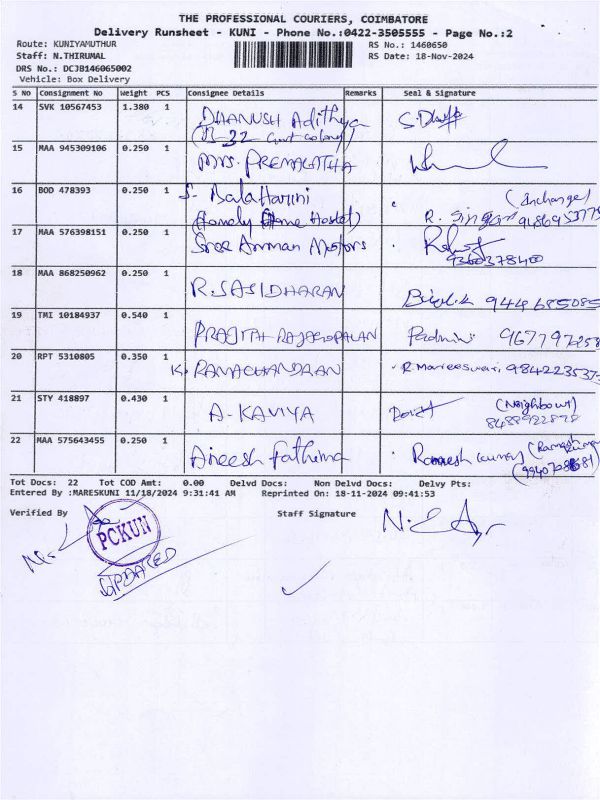 THE PROFESSIONAL COURIERS, COIMBATORE
Delivery Runsheet - KUNI - Phone No.:0422-3505555 - Page No.:2
Route: KUNIYAMUTHUR
RS No.: 1460650
Staff: N.THIRUMAL
RS Date: 18-Nov-2024
DRS No.: DCJB146065002
Vehicle: Box Delivery
S NO Consignment No Weight PCS Consignee Details Remarks Seal & Signature
14 SVK 10567453 1.380 1 DHANUSH Adithya
15 MAA 945309106 0.250 1 MRS. PREMALATHA
16 BOD 478393 0.250 1 S. BalaHarini (Incharge)
(Homely Home Hostel) R.
17 MAA 576398151 0.250 1 Sree Amman Motors
9360378400
18 MAA 868250962 0.250 1 R. SASIDHARAN
9446685085
19 TMI 10184937 0.540 1 PRAJITH RAJAGOPALAN Padmini
20 RPT 5310805 0.350 1 K. RAMACHANDRAN R. Mareeswari
21 STY 418897 0.430 1 A. KAVIYA (Neighbour)
22 MAA 575643455 0.250 1 Aneesh Fathima Ramesh Kumar
Tot Docs: 22 Tot COD Amt: 0.00 Delvd Docs: Non Delvd Docs: Delvy Pts:
Entered By :MARESKUNI 11/18/2024 9:31:41 AM Reprinted On: 18-11-2024 09:41:53
Verified By Staff Signature
PCKUN
UPDATED